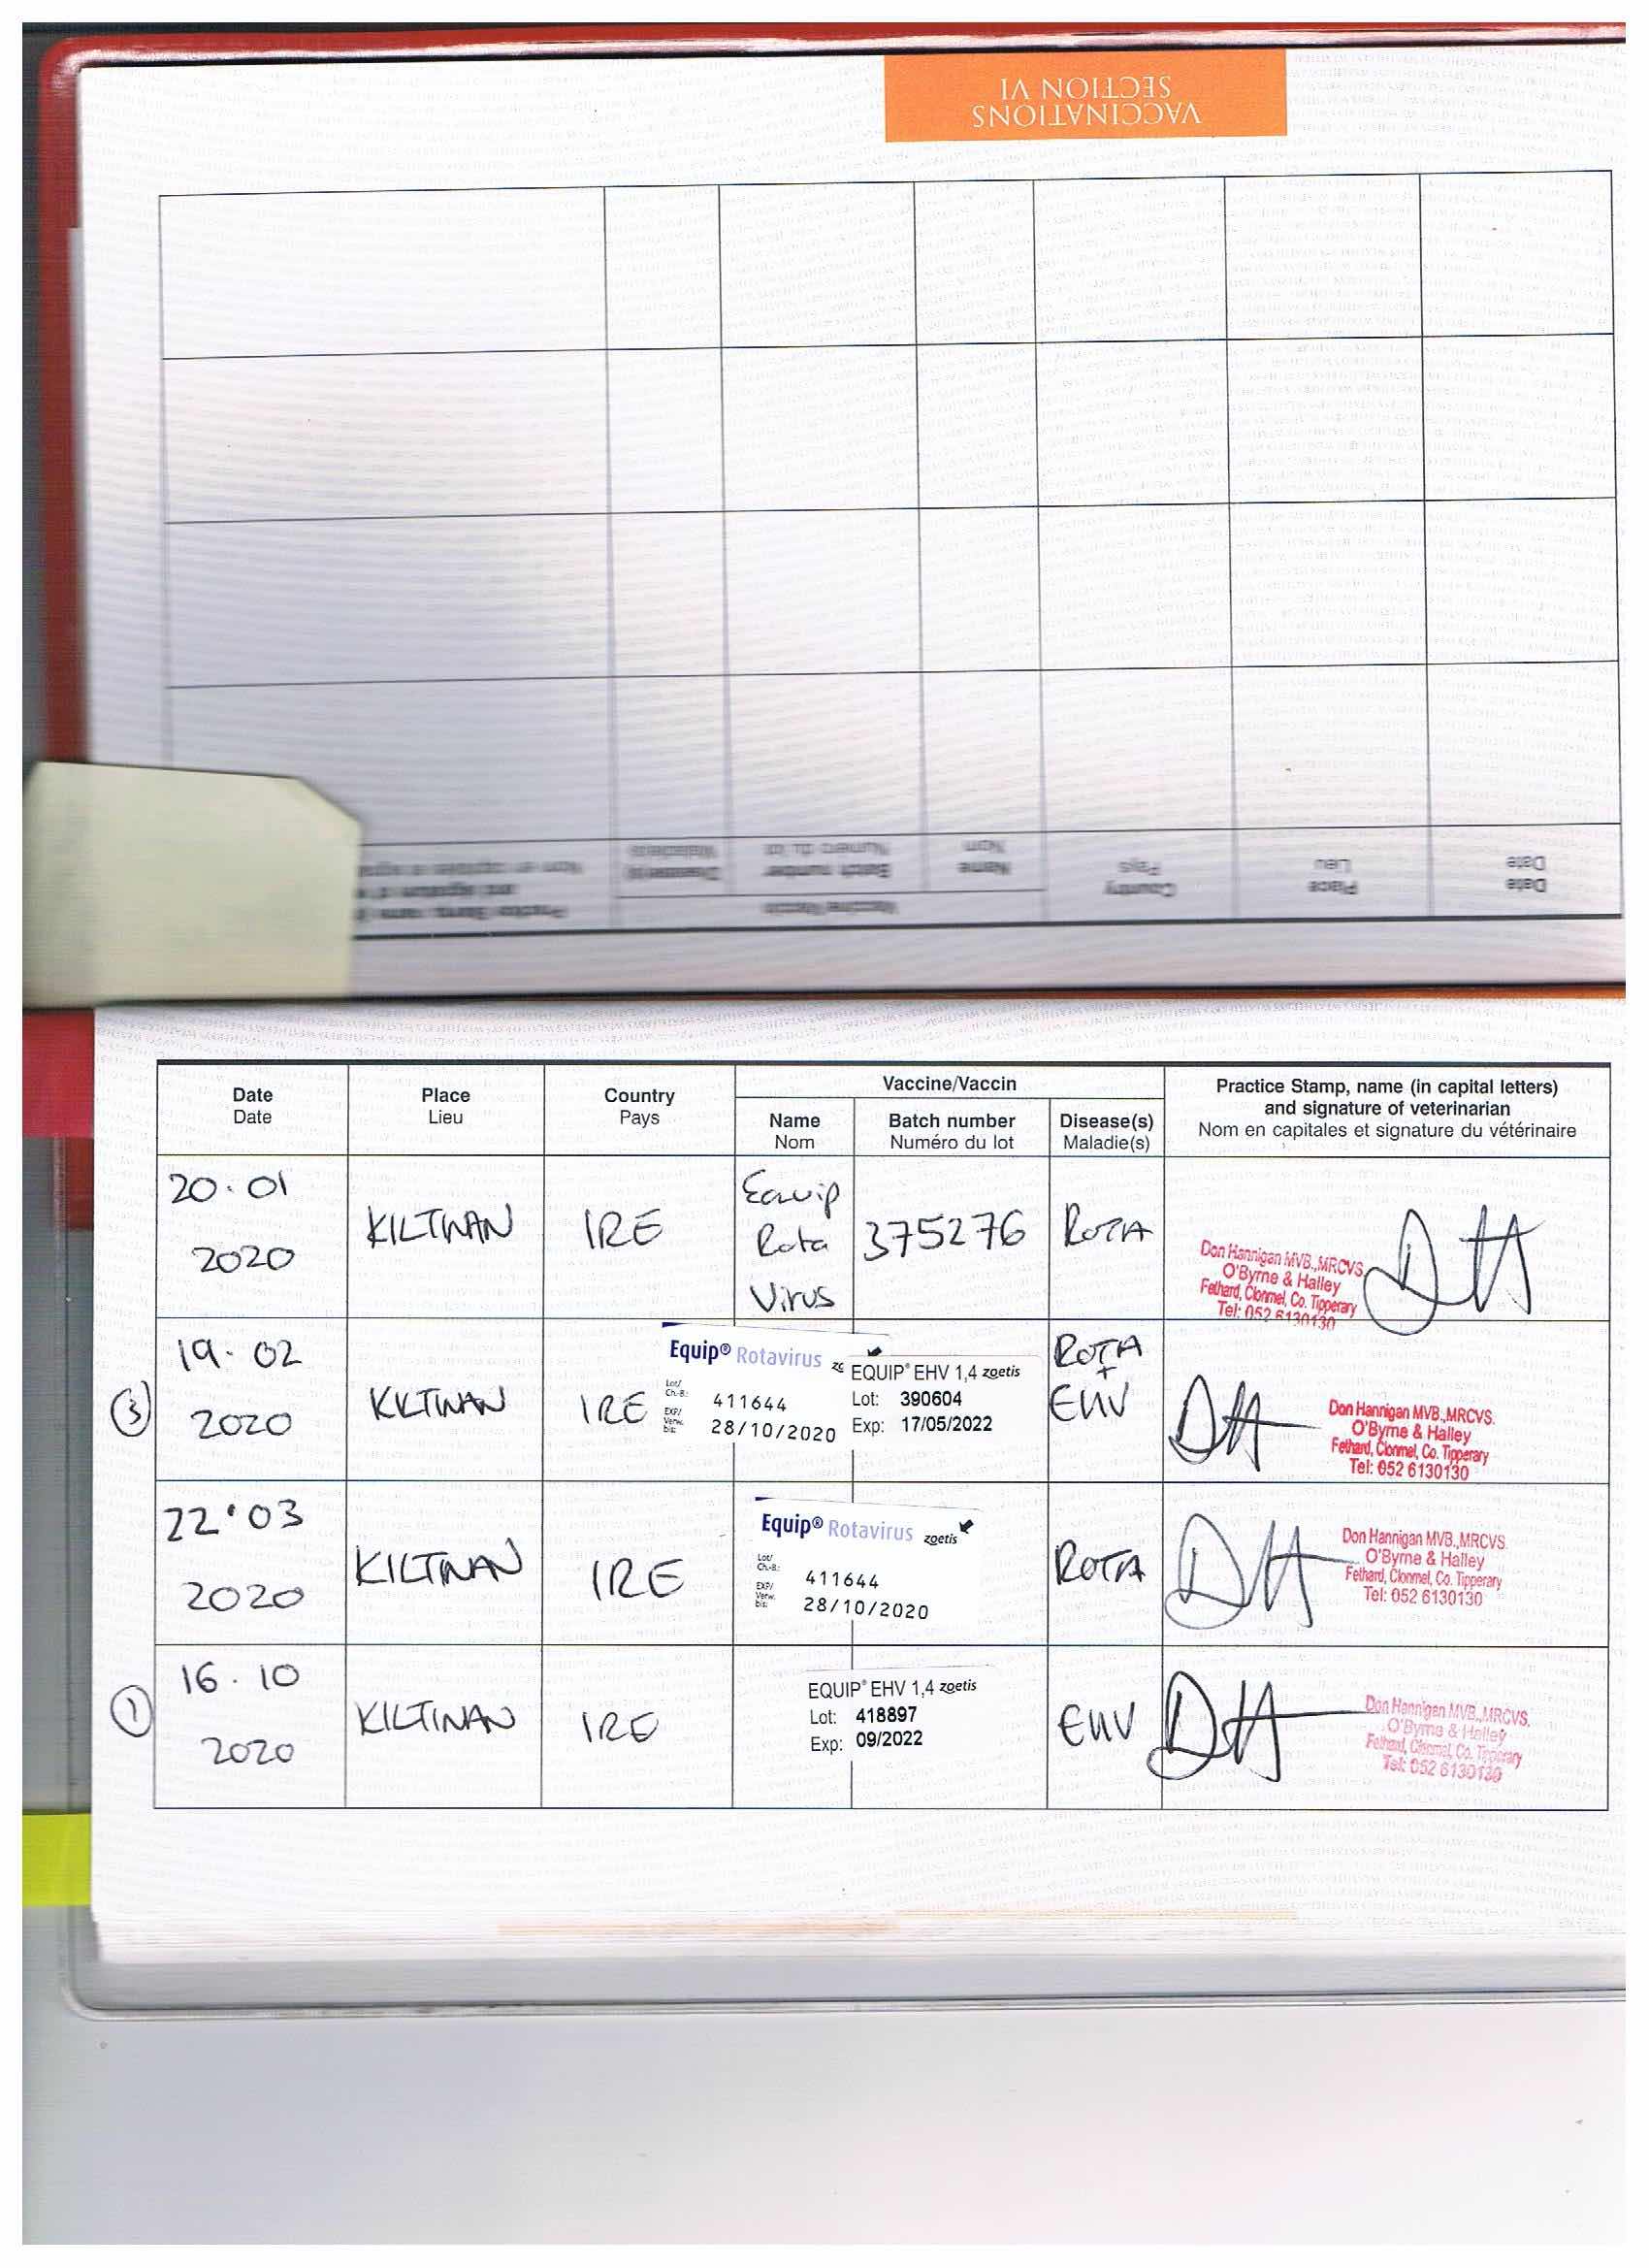 VACCINATIONS
SECTION VI
Date
Date
Place
Lieu
Country
Pays
Vaccine/Vaccin
Name
Nom
Batch number
Numéro du lot
Disease(s)
Maladie(s)
Practice Stamp, name
and signature
Nom en capitales et
Date
Date
Place
Lieu
Country
Pays
Vaccine/Vaccin
Name
Nom
Batch number
Numéro du lot
Disease(s)
Maladie(s)
Practice Stamp, name (in capital letters)
and signature of veterinarian
Nom en capitales et signature du vétérinaire
20.01
2020
KILTINAN
IRE
Equip
Rota
Virus
375276
ROTA
Don Hannigan MVB.,MRCVS.
O'Byrne & Halley
Fethard, Clonmel, Co. Tipperary
Tel: 052 6130130
DH
3
19.02
2020
KILTINAN
IRE
Equip® Rotavirus
Lot/
Ch.-B.:
411644
EXP/
Verw.
bis:
28/10/2020
EQUIP® EHV 1,4 zoetis
Lot: 390604
Exp: 17/05/2022
ROTA
+
EHV
DH
Don Hannigan MVB.,MRCVS.
O'Byrne & Halley
Fethard, Clonmel, Co. Tipperary
Tel: 052 6130130
22.03
2020
KILTINAN
IRE
Equip® Rotavirus zoetis
Lot/
Ch.-B.:
411644
EXP/
Verw.
bis:
28/10/2020
ROTA
DH
Don Hannigan MVB.,MRCVS.
O'Byrne & Halley
Fethard, Clonmel, Co. Tipperary
Tel: 052 6130130
1
16.10
2020
KILTINAN
IRE
EQUIP® EHV 1,4 zoetis
Lot: 418897
Exp: 09/2022
EHV
DH
Don Hannigan MVB.,MRCVS.
O'Byrne & Halley
Fethard, Clonmel, Co. Tipperary
Tel: 052 6130130